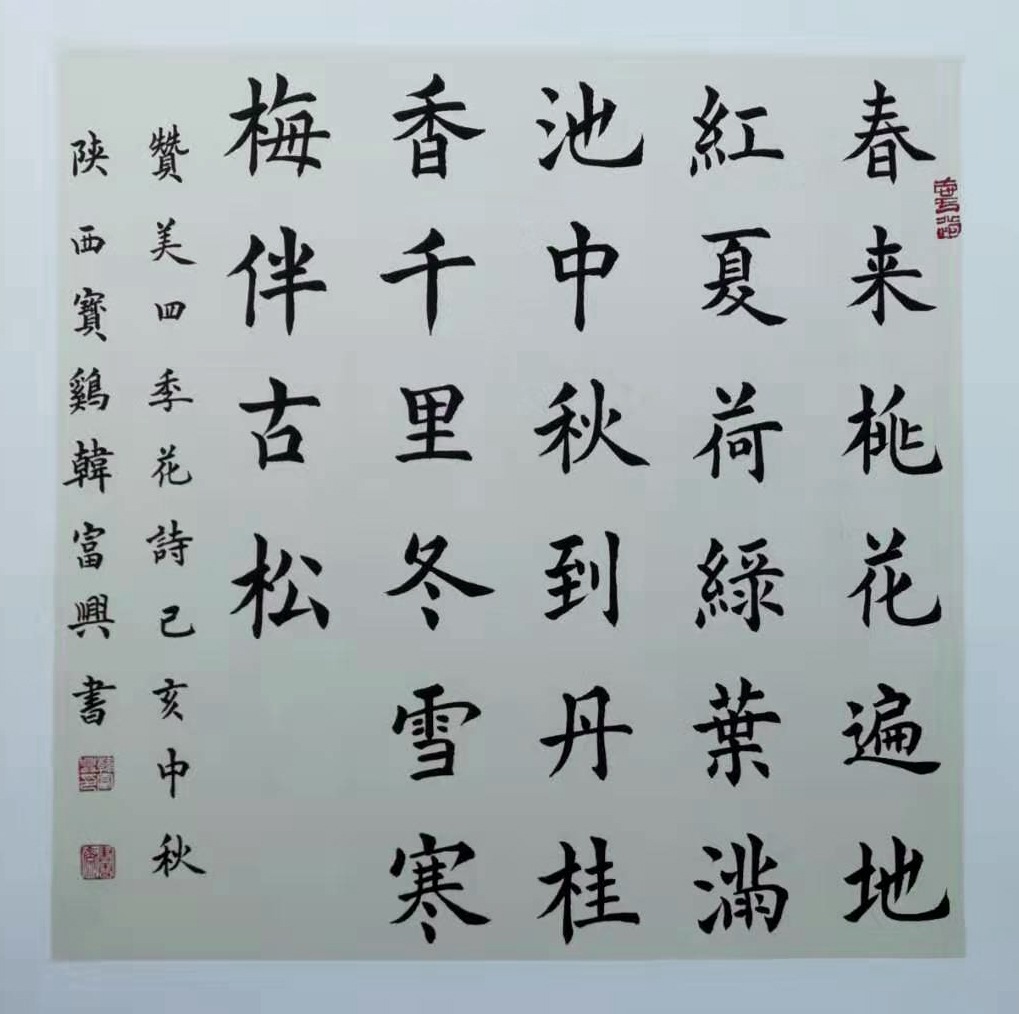 春来桃花遍地
紅夏荷綠葉滿
池中秋到丹桂
香千里冬雪寒
梅伴古松
贊美四季花詩己亥中秋
陕西寶鷄韓富興書